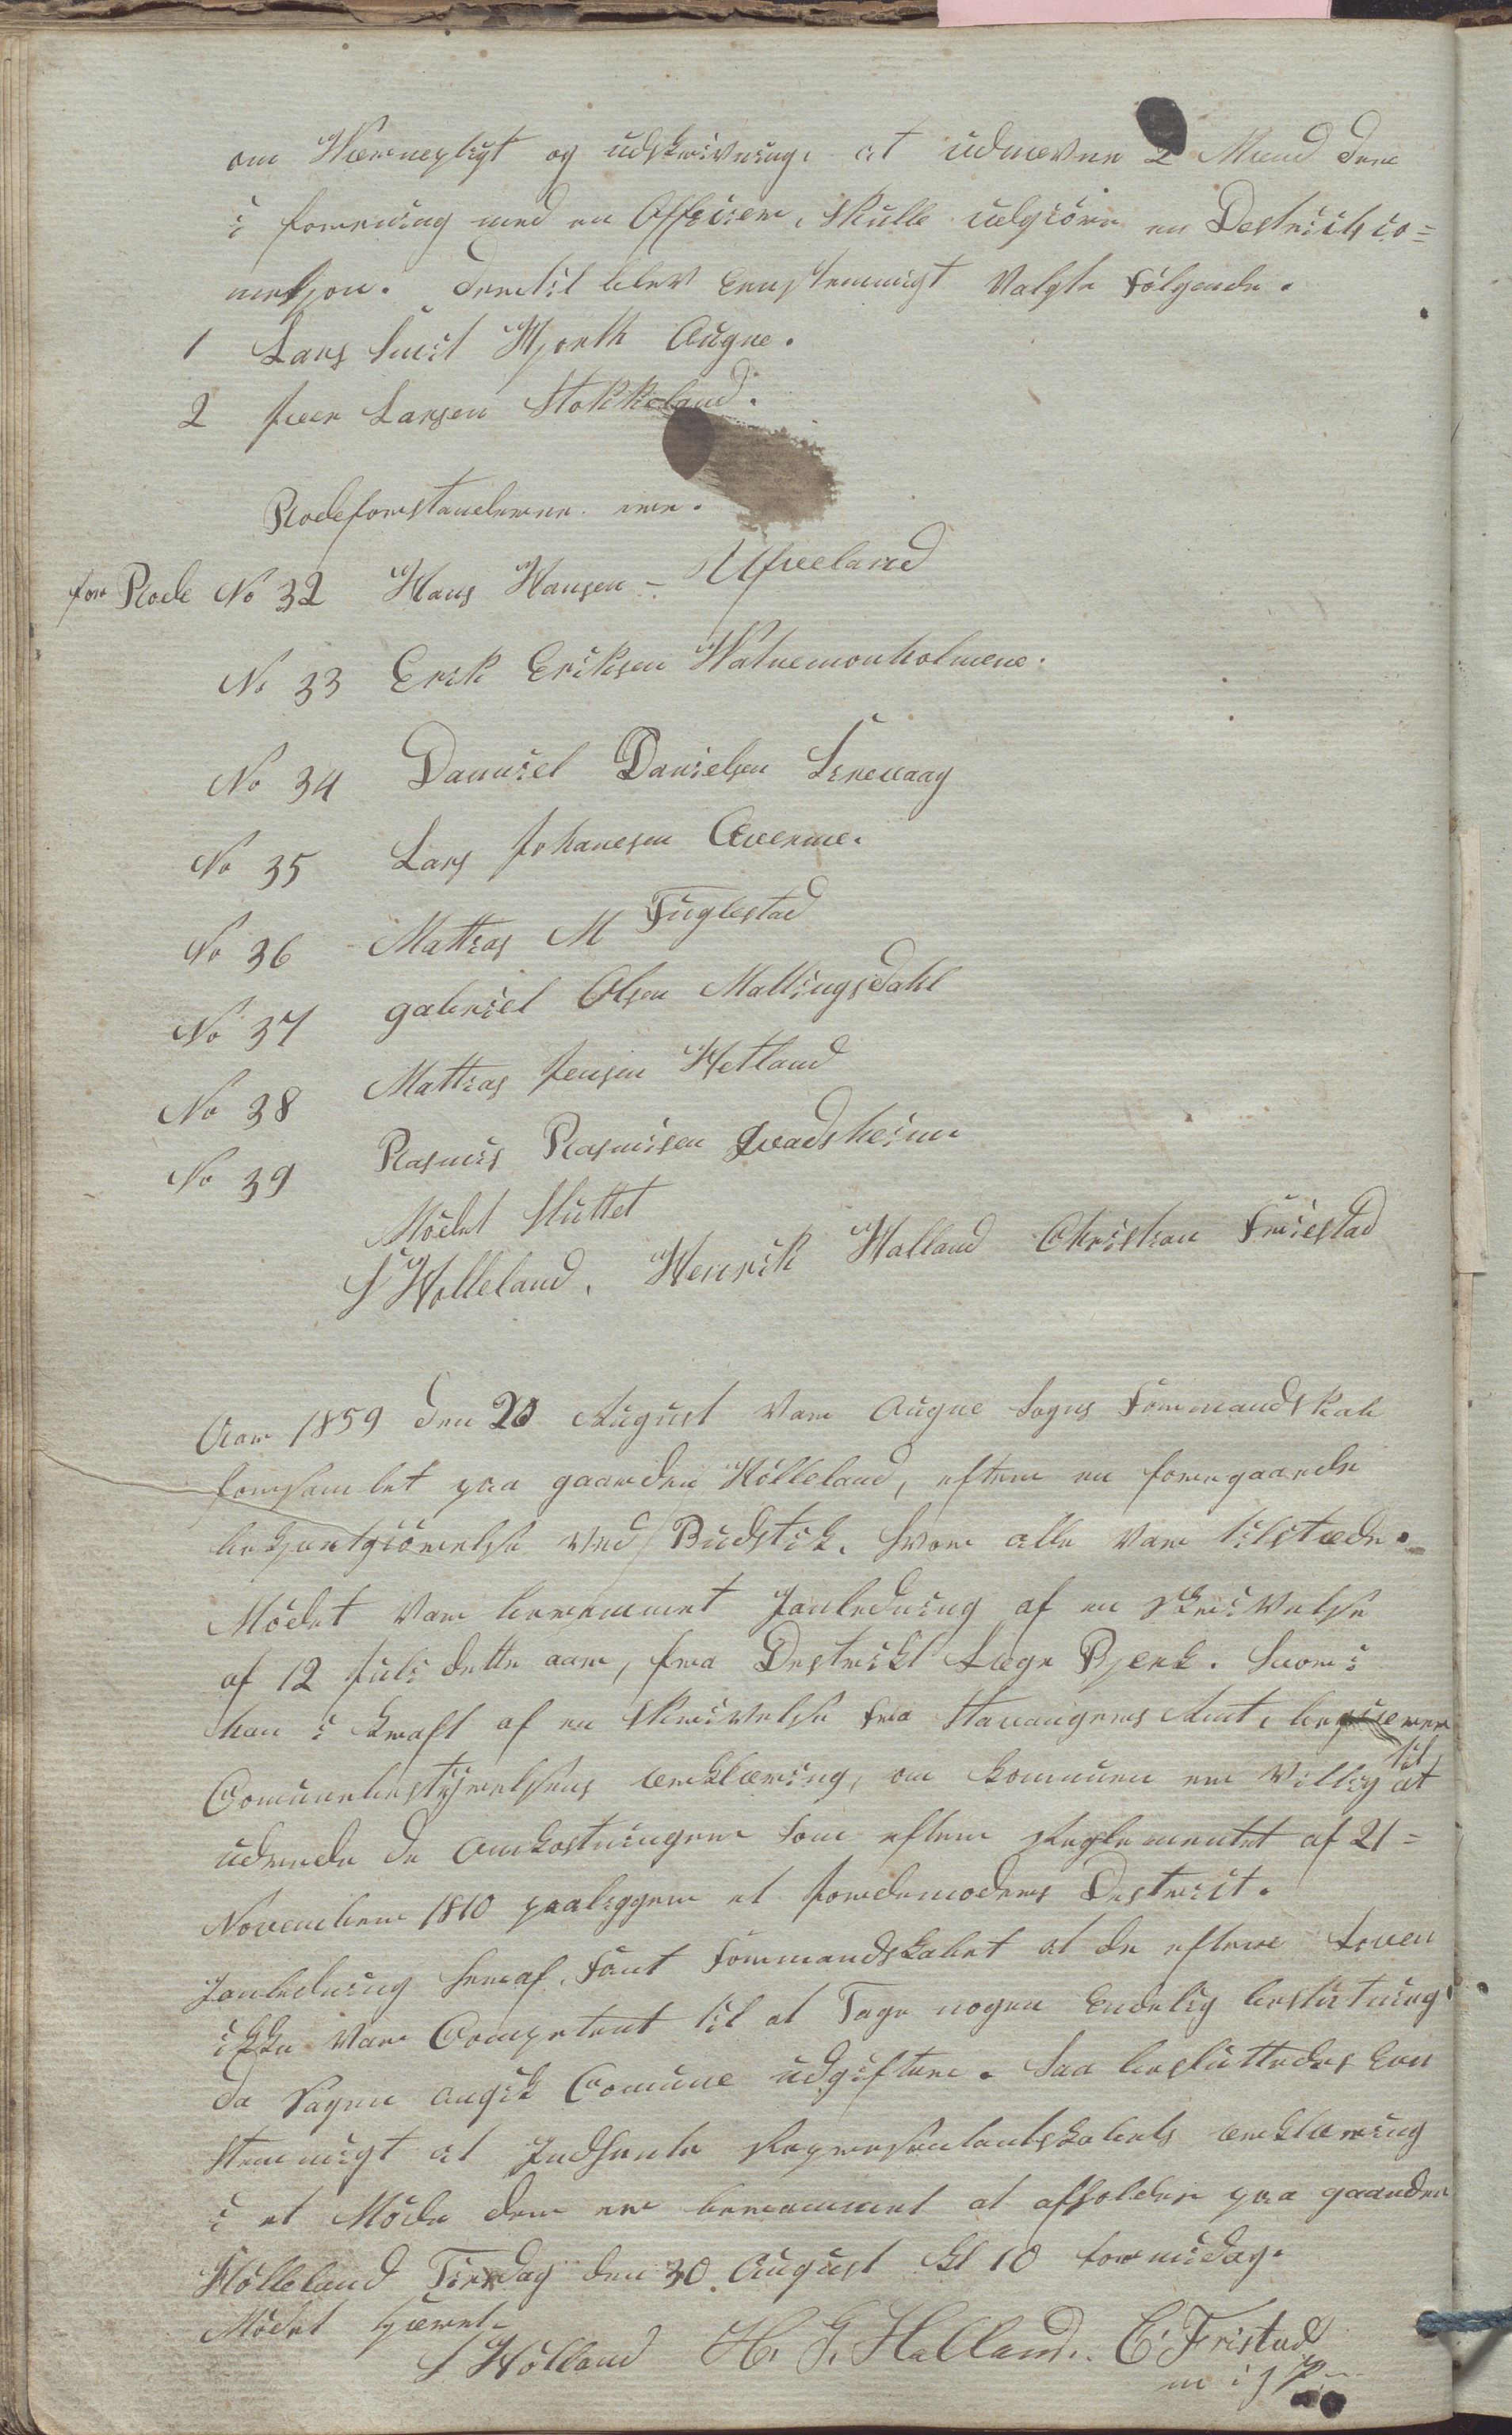 om Wærnepligt og udskrivning, at udnævne 2 Mænd der
i forening med en Officier, skulle udgiöre en Destricts co=
mesjon. Dertil blev Eenstemmigt Valgte følgende.
1 Lars Hjorth Augne.
2 Peer Larsen Stokkeland.
Rodeforstanderne ere.
for Rode No 32 Hans Hansen - Ufveland
No 33 Erik Eriksen Watnemonholmene.
No 34 Danniel Danielsen Sirevaag
No 35 Lars Johanesen Averme.
No 36 Mattias M Fuglestad
No 37 gabriel Olsen Mallingsdahl
No 38 Mattias Jensen Hetland
No 39 Rasmus Rasmusen Qvadsheim
Mödet Sluttet
S Hölleland. Henrik Halland Christian Friestad
Aar 1859 den 20 August var Augne Sogns Formandskab
forsamlet paa gaarden Hölleland, efter en foregaaende
bekjentgiörelse ved Budstik. hvor alle var tilstæde.
Mödet var berammet Ianledning af en skrivelse
af 12 Juli dette aar, fra Destrikt Læge Bjerk. hvori
han i kraft af en skrivelse fra Stavangers Amt, begjærer
Comunebestyrelsens ærklæring, om kommunen er Villig til at
udrede de omkostninger som efter Reglementet af 21=
November 1810 paaligger et Jordemoders Destrict.
Ianledning heraf, fant Formandskabet at de eftere Loven
ikke var Competent til at Tage nogen Endelig beslutning
da sagen angik Comune udgifter. Saa besluttedes Een
stemmigt at Indhente Repræsentantskabets ærklæring
i et Möde der er berammet at afholdes paa gaarden
Hölleland Tirsdag den 30. August kl 10 formidag.
Mödet hævet
S Hölland H. G. Halland. C. Fristad
m i P